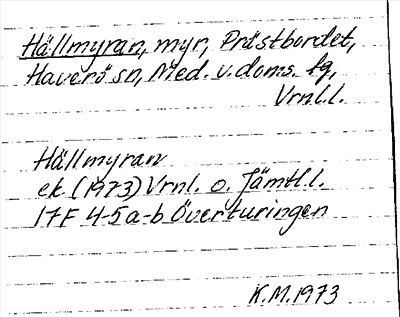 Hällmyran, myr, Prästbordet,
Haverö sn, Med. v. doms. fg,
Vrnl.l.
Hällmyran
ek. (1973) Vrnl. o. Jämtl.l.
17F 4-5a-b Överturingen
K.M. 1973